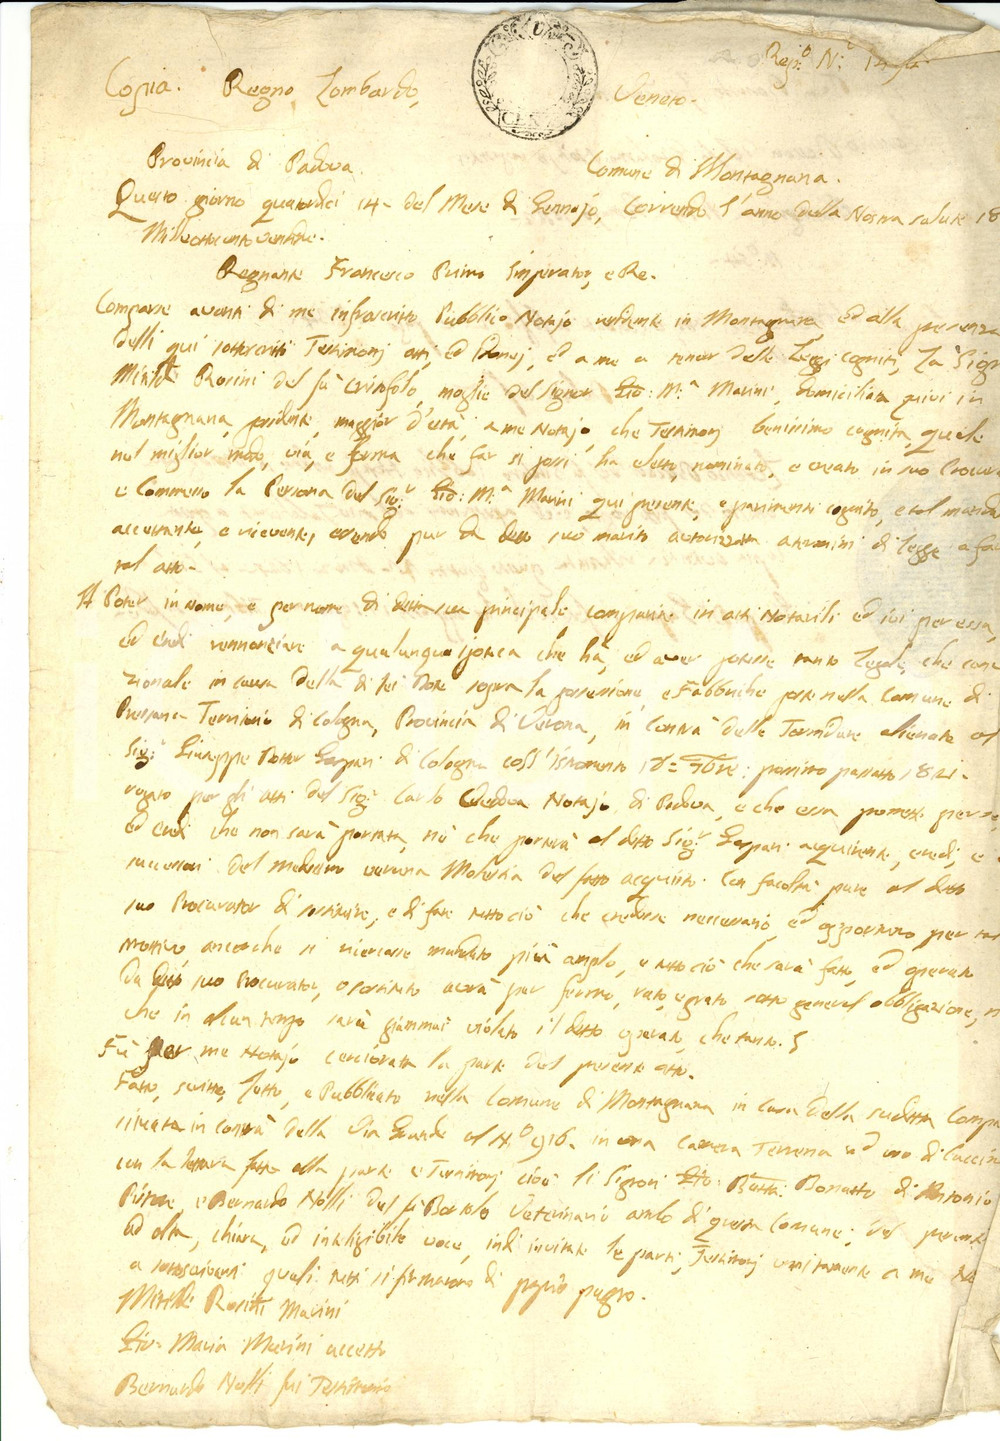 Rep.° N.°
Copia. Regno Lombardo, Veneto.
CENT
Provincia di Padova. Comune di Montagnana.
Questo giorno quatordici 14 - del Mese di Gennajo, correndo l'anno della Nostra salute 18
Milleottocento
Regnante Francesco Primo Imperator, e Re.
Comparse avanti di me infrascritto Pubblico Notajo residente in Montagnana, ed alla presenza
delli qui sottoscritti Testimonj atti, ed Idonej, ed a me a tenor delle Leggi cogniti, La Sig
Rosini del fù Cristofolo, moglie del Signor Gio: M.a Marini, domiciliata quivi in
Montagnana, maggior d'età, a me Notajo, che Testimonj benissimo cognita, quale
nel miglior modo, via, e forma che far si possi ha eletto, nominato, e creato in suo Procur
e Commesso la Persona del Sig.r Gio: M.a Marini qui presente, e parimenti cognito, e tal mand
accettante, e ricevente, essendo pur da detto suo marito autorizzata a termini di legge a far
tal atto -
A Poter in Nome, e per nome di detta sua principale comparire in atti Notarili ed ivi per essa,
ed eredi rinnonziare a qualunque ipoteca che hà, ed aver potesse tanto Legale, che conven
zionale in causa della di lei Dote sopra la possessione, e Fabbriche poste nella Comune di
Pressana Territorio di Cologna, Provincia di Verona, in Contrà delle alienate al
Sig.r Giuseppe Gaspari di Cologna coll'Istromento 18 = 9bre: prossimo passato 1821 -
rogato per gli atti del Sig.r Carlo Notajo di Padova, e che essa promette per se,
ed eredi che non sarà portata, nè che porterà al detto Sig.r Gaspari acquirente, eredi, e
successori del medesimo veruna Molestia del fatto acquisto. Con facoltà pure al detto
suo Procurator di sostituire, e di fare tutto ciò che credesse neccessario, ed opportuno per
mottivo, ancorche si ricercasse mandato più amplo, e tutto ciò che sarà fatto, ed operato
da detto suo Procurator, o sostituto avrà per fermo, rato, e grato sotto general obbligazione, n
che in alcun tempo sarà giammai violato il detto operato, che tanto.
Fù per me Notajo cerciorata la parte del presente atto.
Fatto, scritto, letto, e Pubblicato nella Comune di Montagnana in casa della sudetta Compa
situata in contrà della Via Grande al N.° 916. in una Camera Terrena ad uso di Cuccin
con la lettura fatta alla parte e Testimonj cioè li Signori Gio: Batta: Bonatto di Antonio
e Bernardo Nolli del fù Bortolo Veterinario ambo di questa Comune; del presente
ad alta, chiara, ed inteligibile voce, indi invitate le parti, Testimonj unitamente a me No
a sottoscriversi quali tutti si firmarono di proprio pugno.
Rosini Marini
Gio. Maria Marini accetto
Bernardo Nolli fui Testimonio